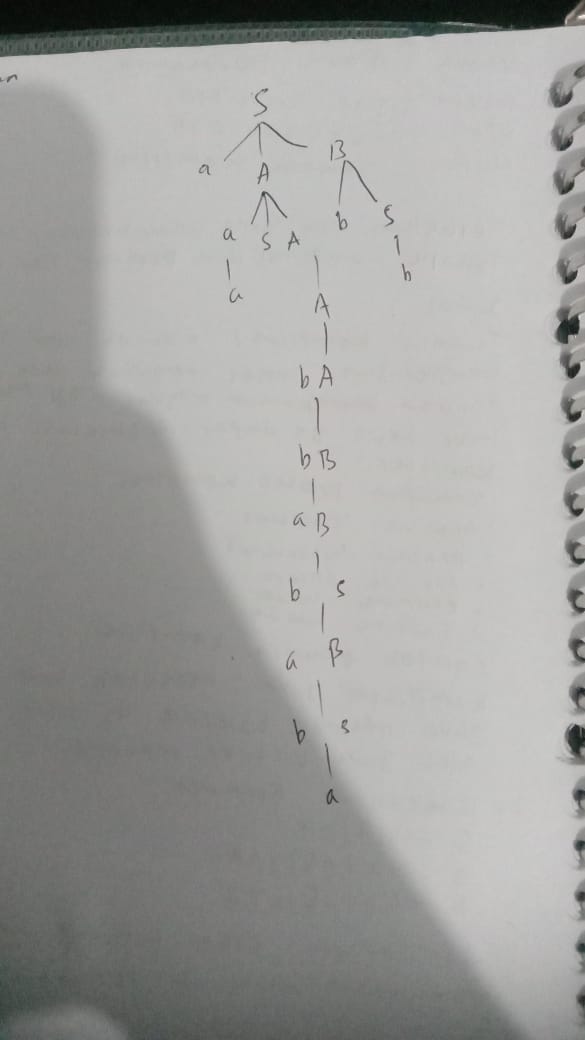 S
a A B
a S A b S
a b
A
b A
b B
a B
b S
a B
b S
a